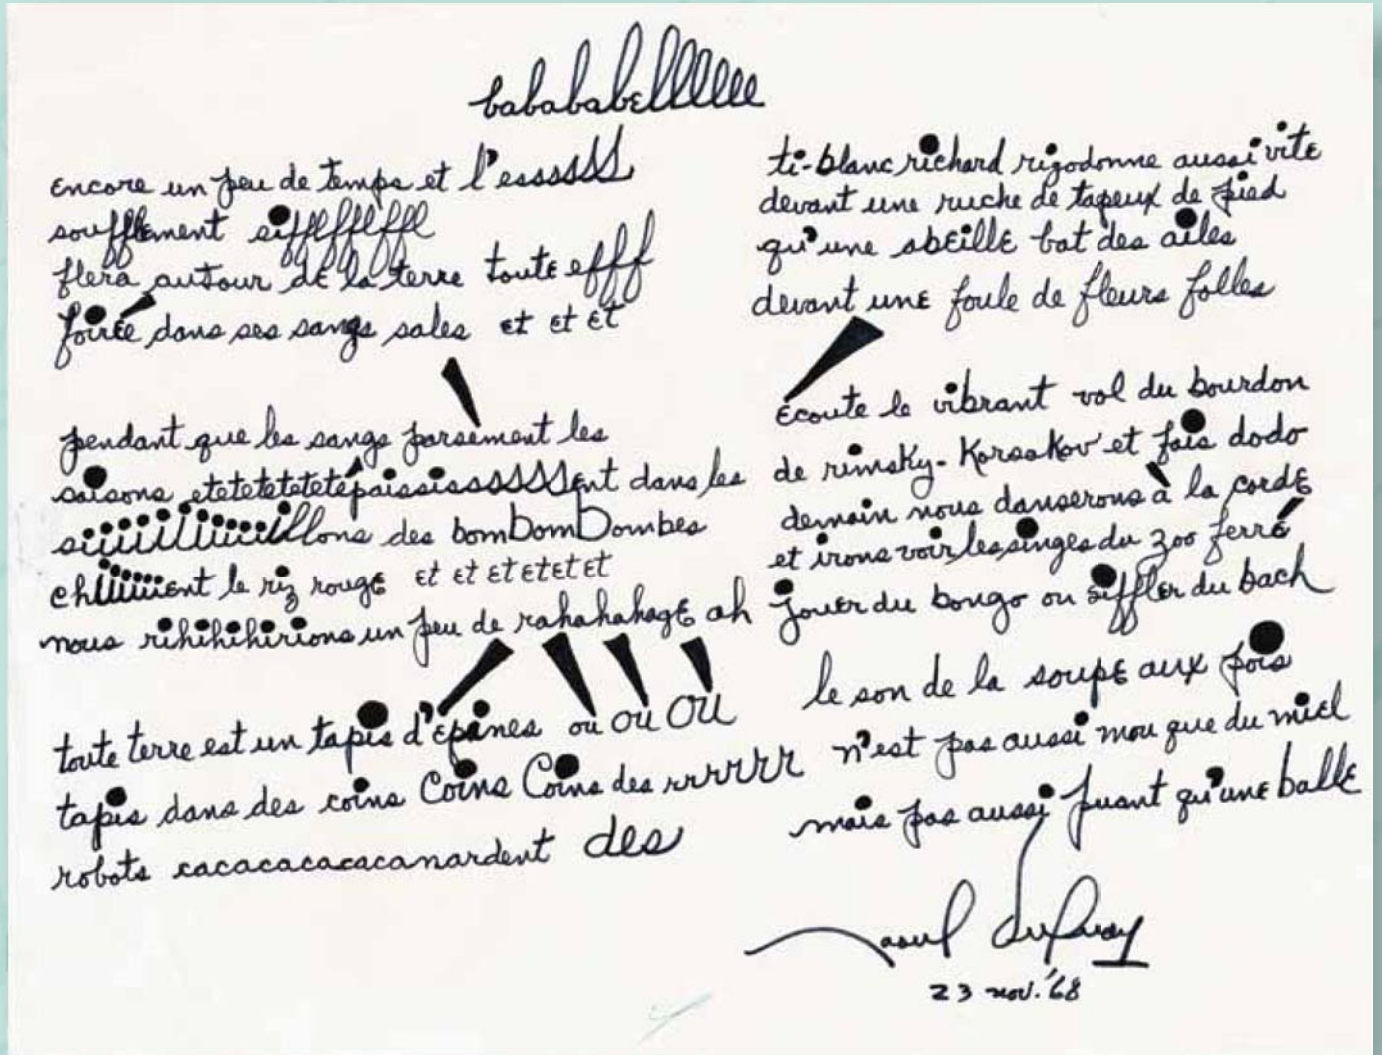 babababellllllle
encore un peu de temps et l'esssssss
soufflement sifflfflfflffl
flera autour de la terre toute efff
foirée dans ses sangs sales et et et
pendant que les sangs parsement les
saisons etetetetetetépaississsssssent dans les
siiiiillliiiiillons des bombomBombes
chiiiiiient le riz rouge et et etetetet
nous rihihihihirions un peu de rahahahahage ah
toute terre est un tapis d'épines où où Où
tapis dans des coins Coins Coins des rrrrrrr
robots cacacacacacanardent des
ti-blanc richard rigodonne aussi vite
devant une ruche de tapeux de pied
qu'une abeille bat des ailes
devant une foule de fleurs folles
écoute le vibrant vol du bourdon
de rimsky-Korsakov et fais dodo
demain nous danserons à la corde
et irons voir les singes du zoo ferré
jouer du bongo ou siffler du bach
le son de la soupe aux pois
n'est pas aussi mou que du miel
mais pas aussi puant qu'une balle
raoul duguay
23 nov. '68